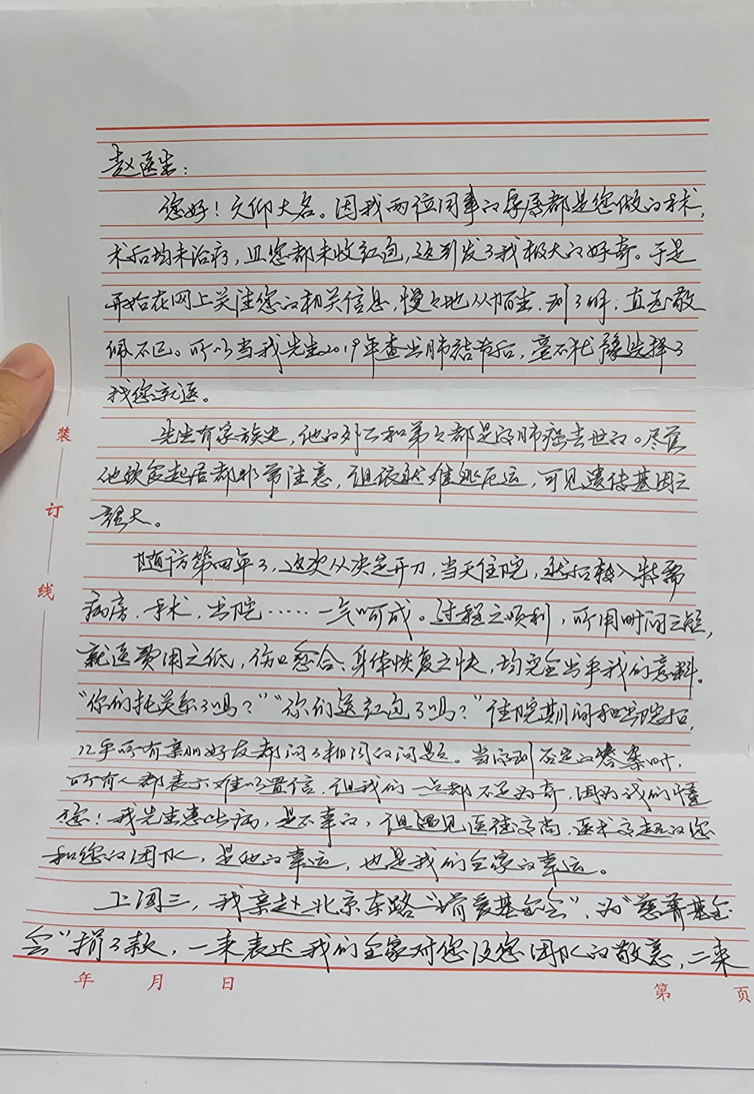 赵医生：
您好！久仰大名。因我两位同事的导师都是您做的手术，
术后均未治疗，且您都未收红包，这引发了我极大的好奇。于是
开始在网上关注您的相关信息，慢慢地从陌生，到了解，直至敬
佩不已。所以当我先生2019年查出肺结节后，毫不犹豫选择了
找您就医。
先生有家族史，他的外公和弟弟都是得肺癌去世的。尽管
他饮食起居都非常注意，但依然难逃厄运，可见遗传基因之
强大。
随访第四年了，这次从决定开刀，当天住院，然后转入特需
病房，手术，出院……一气呵成。过程之顺利，所用时间之短，
就医费用之低，伤口愈合、身体恢复之快，均完全出乎我们意料。
“你们托关系了吗？”“你们送红包了吗？”住院期间和出院后，
几乎所有亲朋好友都问了相同的问题。当得到否定的答案时，
所有人都表示难以置信，但我们一点都不足为奇，因为我们懂
您！我先生患此病，是不幸的，但遇见医德高尚、医术高超的您
和您的团队，是他的幸运，也是我们全家的幸运。
上周三，我亲赴北京东路“爱基金会”，为“慈善基金
会”捐了款，一来表达我们全家对您及您团队的敬意，二来
装
订
线
年 月 日
第 页